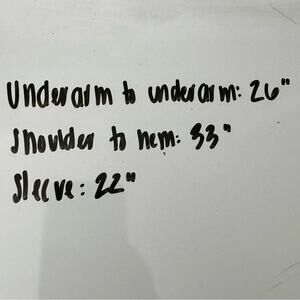 Underarm to underarm: 26"
Shoulder to hem: 33"
Sleeve: 22"